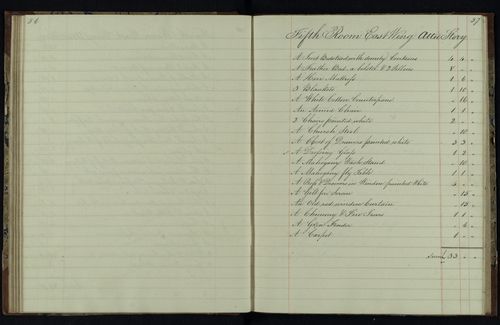 36
37
Fifth Room East Wing Attic Story
A Tent Bedstead with dimity Curtains 4 4 -
A Feather Bed, a bolster & 2 Pillows 8 - -
A Hair Mattress 1 6 -
3 Blankets 1 10 -
A White Cotton Counterpane - 16 -
An Armed Chair 1 1 -
2 Chairs painted white 2 - -
A Church Stool - 10 -
A Chest of Drawers painted white 3 3 -
A Dressing Glass 1 2 -
A Mahogany Wash Stand - 10 -
A Mahogany fly Table 1 1 -
A Desk & Drawers in Window painted White 5 - -
A Gilt fire Screen - 15 -
An Old red window Curtain - 15 -
A Chimney & Fire Irons 1 1 -
A Green Fender - 6 -
A Carpet 1 - -
33 - -